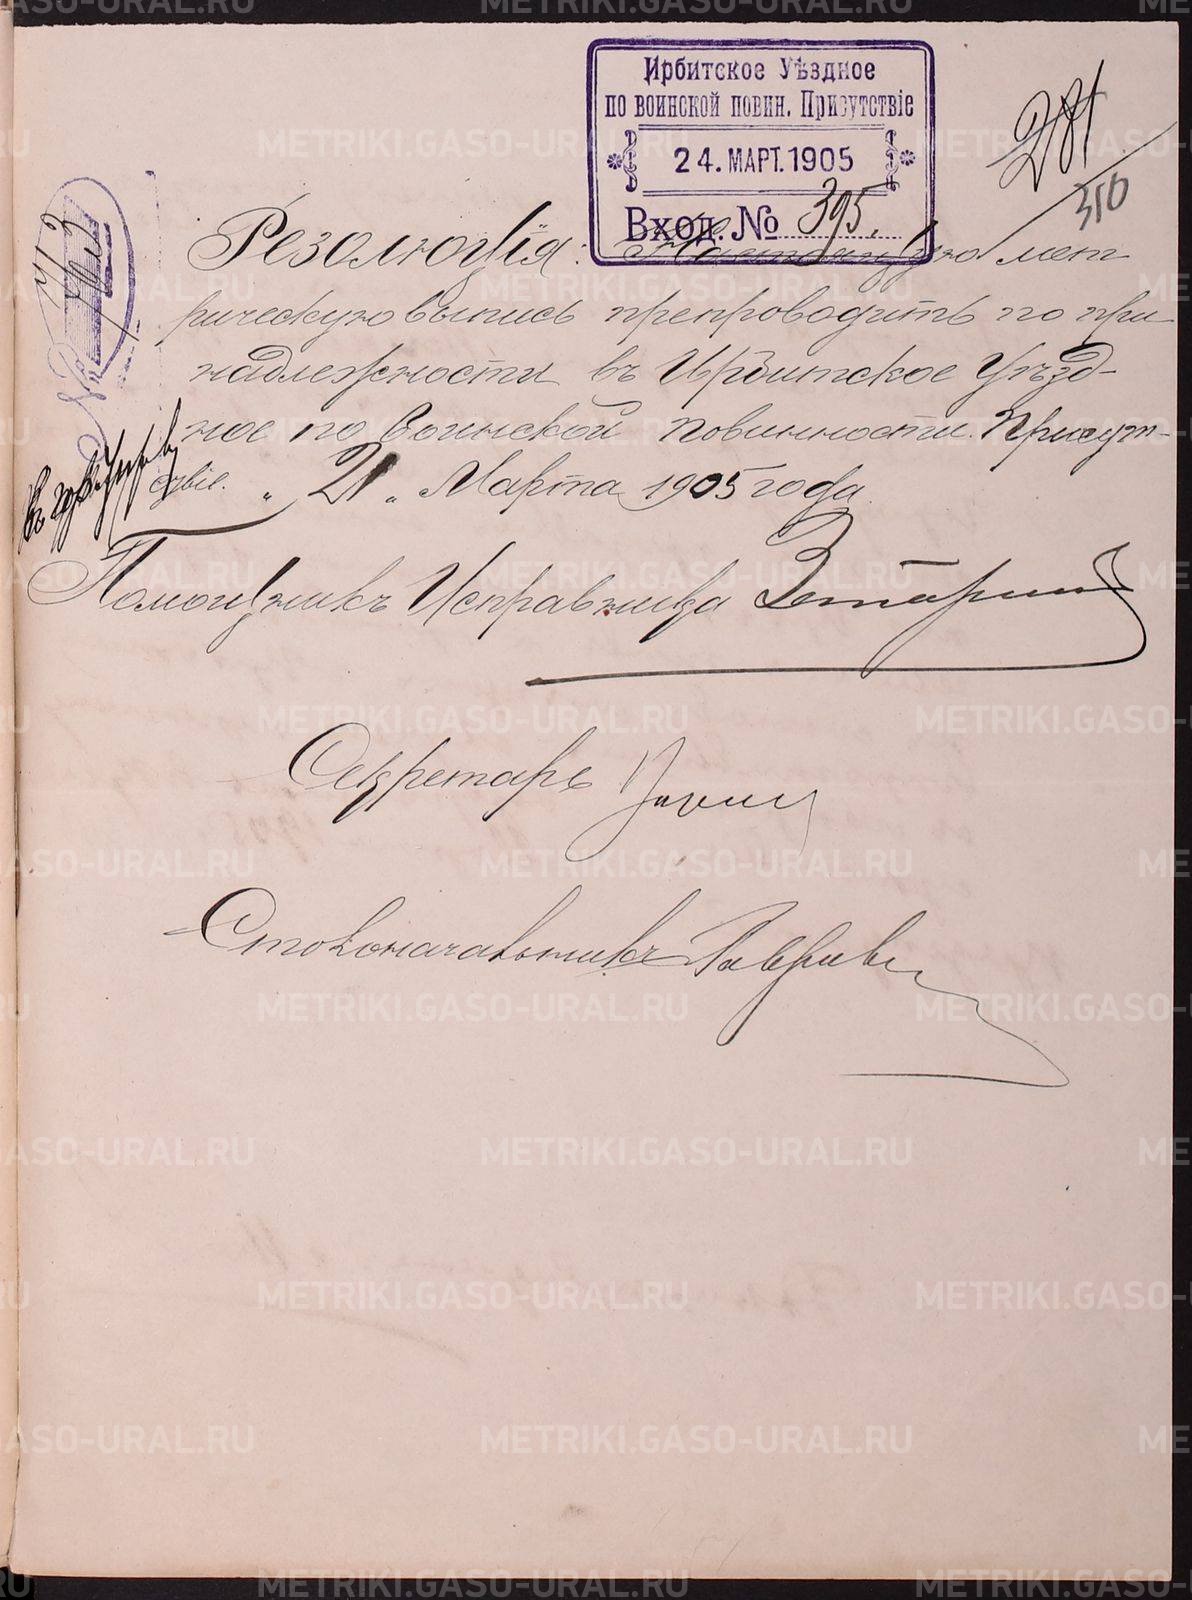 Ирбитское Уѣздное
по воинской повин. Присутствіе
24. МАРТ. 1905
Вход. № 395.
281
350
Резолюція: Настоящую мет
рическую выпись препроводить по при
надлежности въ Ирбитское Уѣзд-
ное по воинской повинности Присут-
ствіе. „ 21 „ Марта 1905 года
Помощникъ Исправника
Секретарь
Столоначальникъ
METRIKI.GASO-URAL.RU